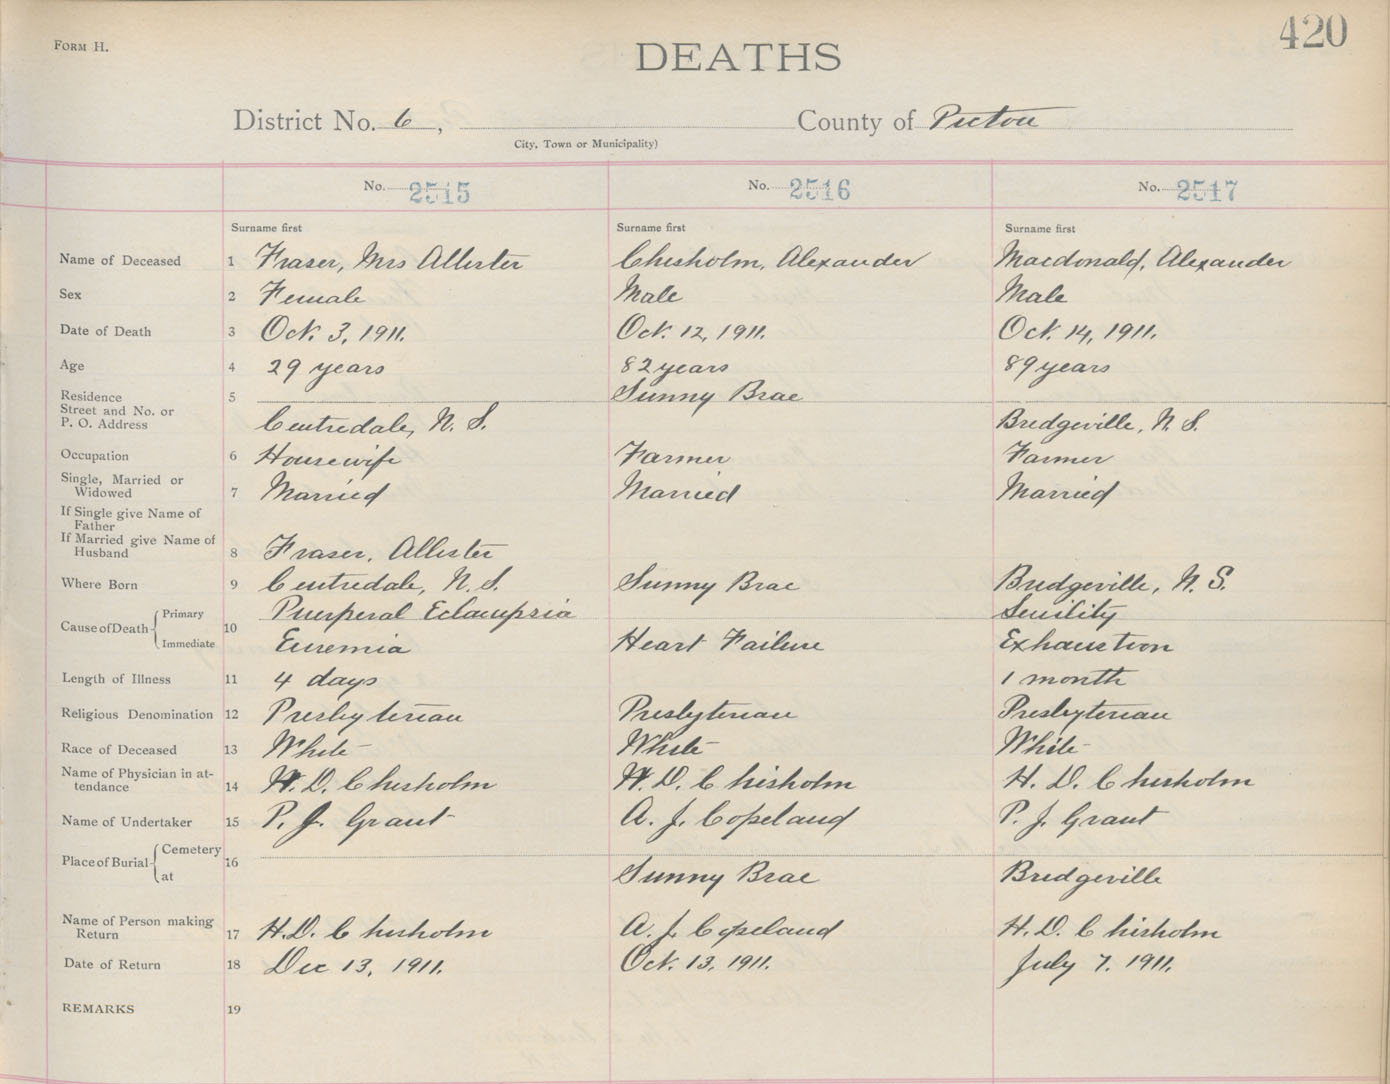 FORM H.
420
DEATHS
District No. 6, County of Pictou
City, Town or Municipality)
No. 2515 No. 2516 No. 2517
Surname first Surname first Surname first
Name of Deceased 1 Fraser, Mrs Allister Chisholm, Alexander Macdonald, Alexander
Sex 2 Female Male Male
Date of Death 3 Oct. 3, 1911. Oct. 12, 1911. Oct. 14, 1911.
Age 4 29 years 82 years 89 years
Residence 5 Sunny Brae
Street and No. or
P. O. Address Centredale, N. S. Bridgeville, N. S.
Occupation 6 Housewife Farmer Farmer
Single, Married or
Widowed 7 Married Married Married
If Single give Name of
Father
If Married give Name of
Husband 8 Fraser, Allister
Where Born 9 Centredale, N. S. Sunny Brae Bridgeville, N. S.
Cause of Death Primary 10 Puerperal Eclampsia Senility
Immediate Euremia Heart Failure Exhaustion
Length of Illness 11 4 days 1 month
Religious Denomination 12 Presbyterian Presbyterian Presbyterian
Race of Deceased 13 White White White
Name of Physician in at-
tendance 14 H. D. Chisholm H. D. Chisholm H. D. Chisholm
Name of Undertaker 15 P. J. Grant A. J. Copeland P. J. Grant
Place of Burial Cemetery 16
at Sunny Brae Bridgeville
Name of Person making
Return 17 H. D. Chisholm A. J. Copeland H. D. Chisholm
Date of Return 18 Dec 13, 1911. Oct. 13, 1911. July 7. 1911.
REMARKS 19